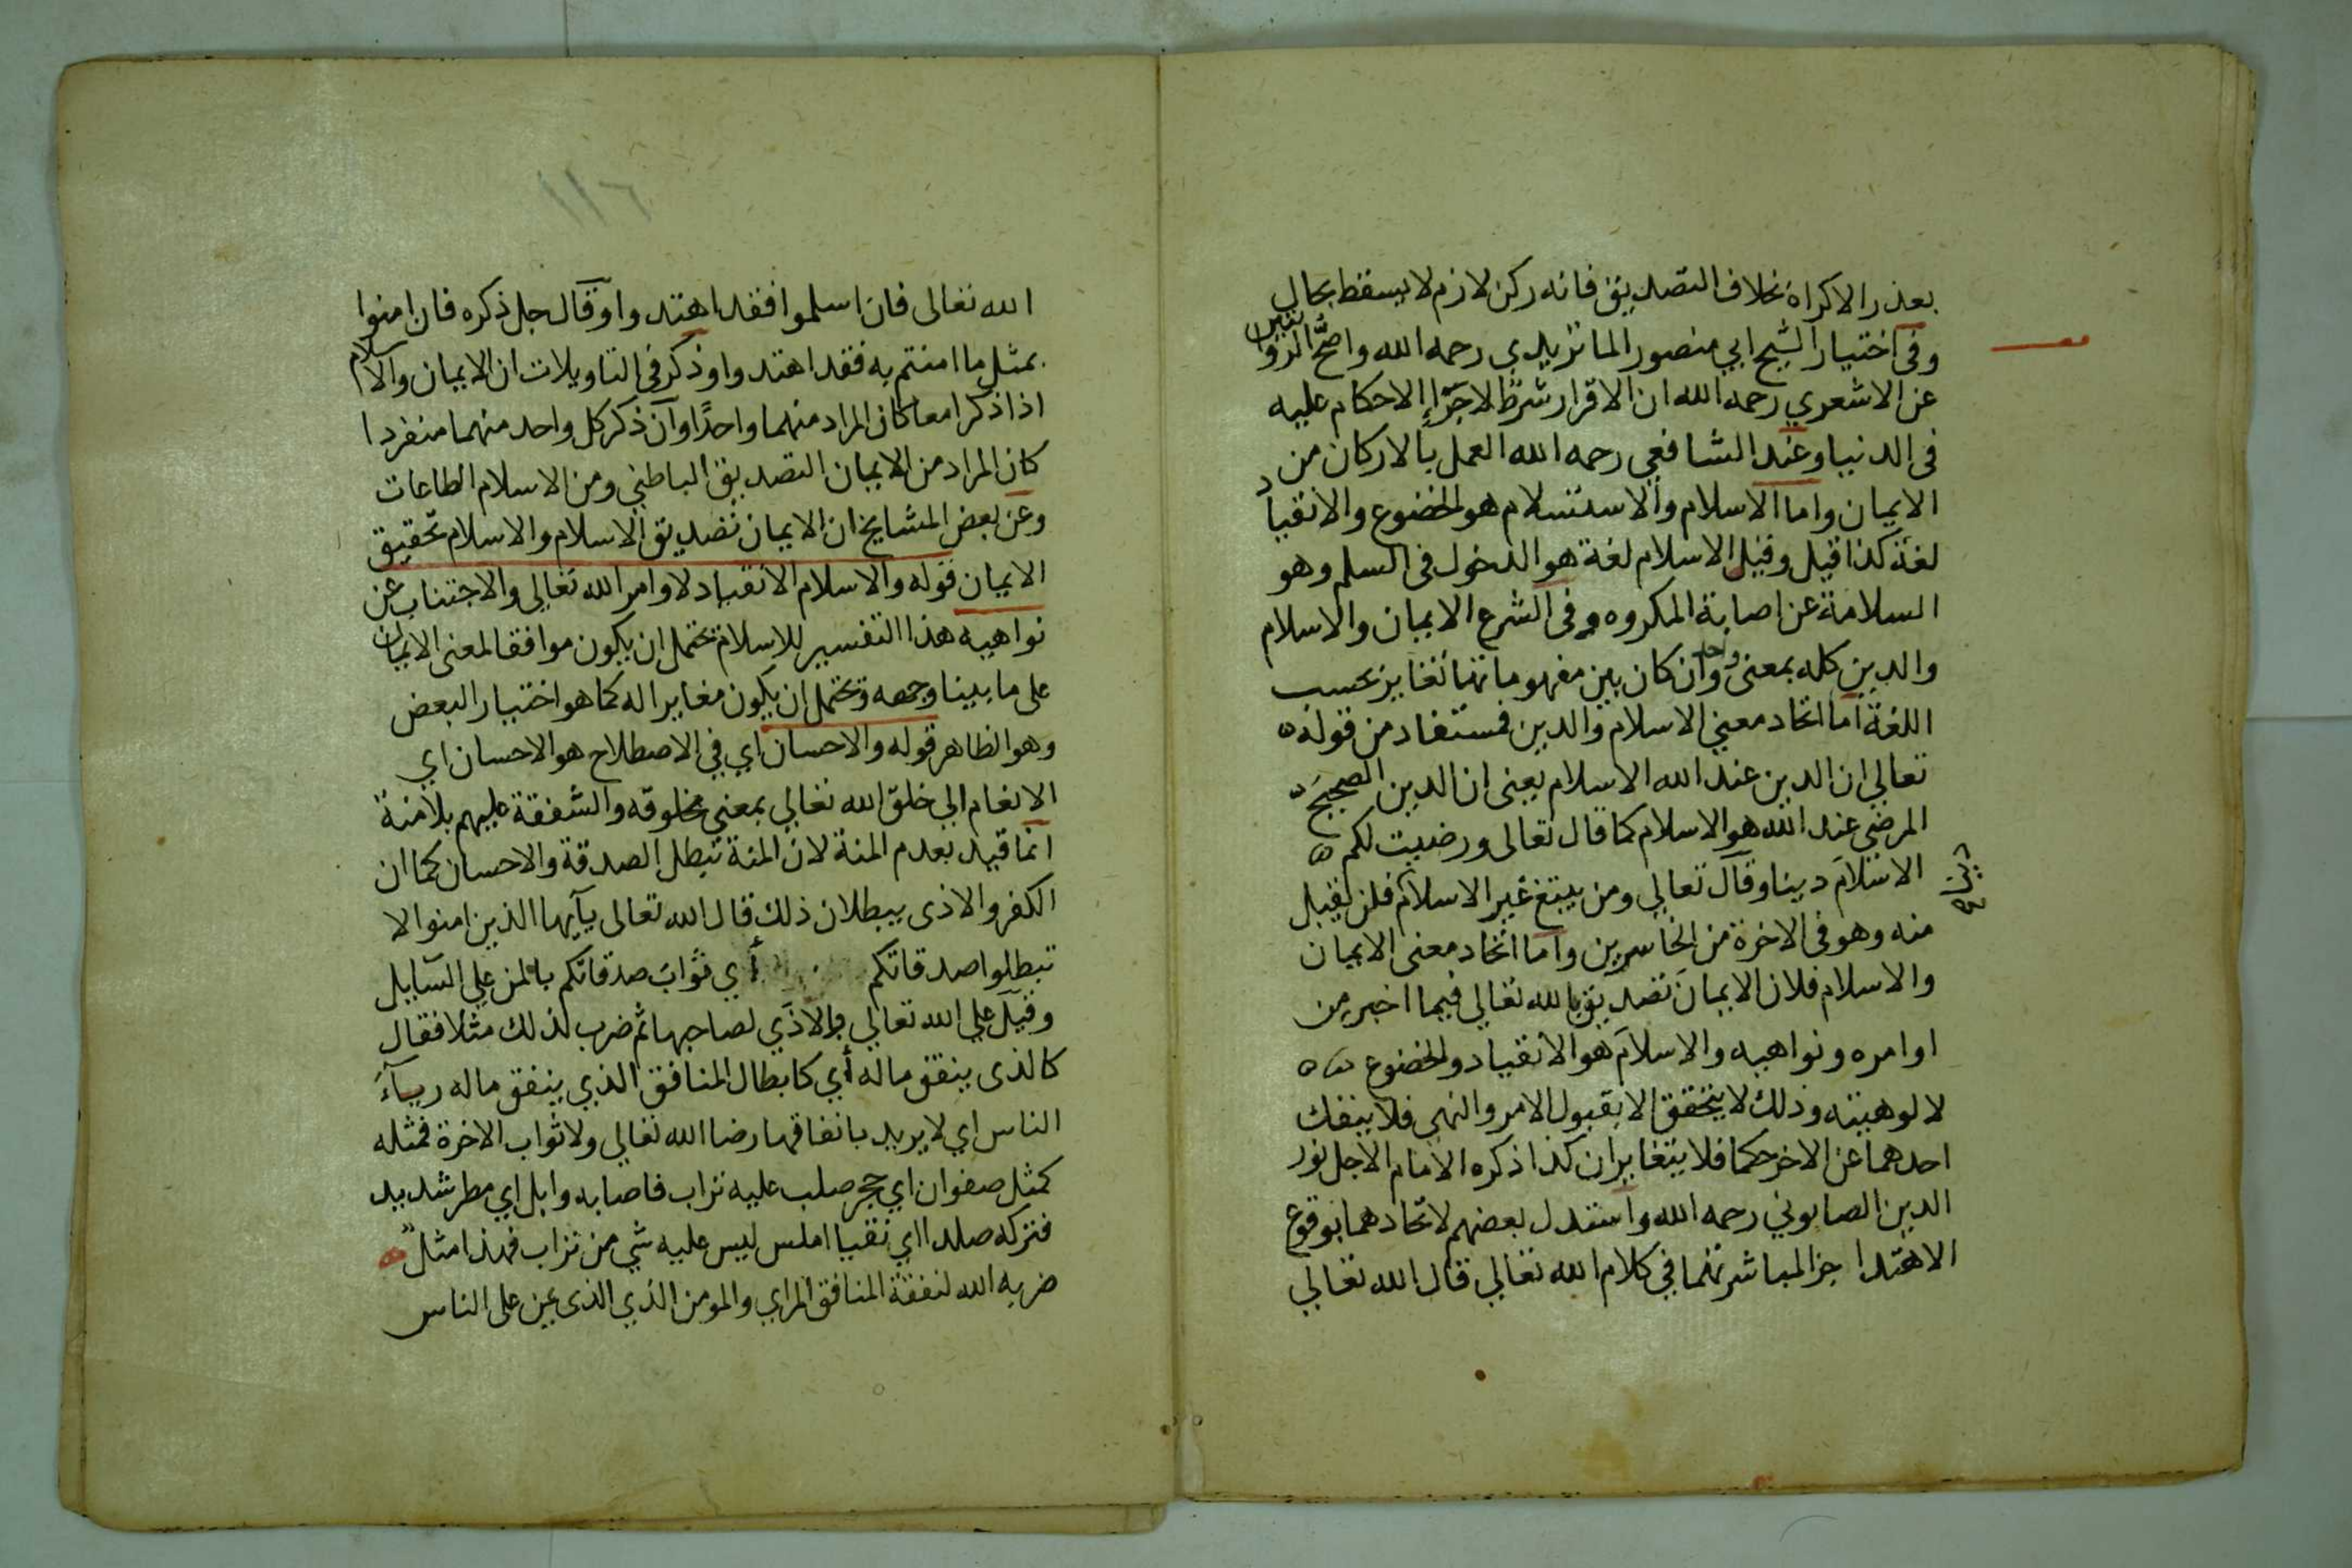 بعذر الاكراه بخلاف التصديق فانه ركن لازم لا يسقط بحال
وفى اختيار الشيخ ابي منصور الماتريدي رحمه الله واصح الروايتين
عن الاشعري رحمه الله ان الاقرار شرط لاجراء الاحكام عليه
فى الدنيا وعند الشافعي رحمه الله العمل بالاركان من
الايمان واما الاسلام والاستسلام هو الخضوع والانقياد
لغة كذا قيل وقيل الاسلام لغة هو الدخول فى السلم وهو
السلامة عن اصابة المكروه وفى الشرع الايمان والاسلام
والدين كله بمعنى واحد وان كان بين مفهوماتها تغاير بحسب
اللغة اما اتحاد معنى الاسلام والدين فمستفاد من قوله
تعالى ان الدين عند الله الاسلام يعنى ان الدين الصحيح
المرضى عند الله هو الاسلام كما قال تعالى ورضيت لكم
الاسلام دينا وقال تعالى ومن يبتغ غير الاسلام فلن يقبل
منه وهو فى الاخرة من الخاسرين واما اتحاد معنى الايمان
والاسلام فلان الايمان تصديق بالله تعالى فيما اخبر من
اوامره ونواهيه والاسلام هو الانقياد والخضوع
لالوهيته وذلك لا يتحقق الا بقبول الامر والنهى فلا ينفك
احدهما عن الاخر حكما فلا يتغايران كذا ذكره الامام الاجل نور
الدين الصابوني رحمه الله واستدل بعضهم لاتحادهما بوقوع
الاهتدا جز المباشرتهما في كلام الله تعالى قال الله تعالى
١١٦
الله تعالى فان اسلموا فقد اهتدوا وقال جل ذكره فان امنوا
بمثل ما امنتم به فقد اهتدوا وذكر فى التاويلات ان الايمان والاسلام
اذا ذكرا معا كان المراد منهما واحدًا وان ذكر كل واحد منهما منفردا
كان المراد من الايمان التصديق الباطني ومن الاسلام الطاعات
وعن بعض المشايخ ان الايمان تصديق الاسلام والاسلام تحقيق
الايمان قوله والاسلام الانقياد لاوامر الله تعالى والاجتناب عن
نواهيه هذا التفسير للاسلام يحتمل ان يكون موافقا لمعنى الايمان
على ما بينا وجهه ويحتمل ان يكون مغايرا له كما هو اختيار البعض
وهو الظاهر قوله والاحسان اي في الاصطلاح هو الاحسان اي
الانعام الي خلق الله تعالي بمعني مخلوقه والشفقة عليهم بلا منة
انما قيد بعدم المنة لان المنة تبطل الصدقة والاحسان كما ان
الكفر والاذى يبطلان ذلك قال الله تعالى يآيها الذين امنوا لا
تبطلوا صدقاتكم أي ثواب صدقاتكم بالمن علي السآيل
وقيل علي الله تعالي والاذي لصاحبها ثم ضرب لذلك مثلا فقال
كالذى ينفق ماله أي كابطال المنافق الذي ينفق ماله ريآء
الناس اي لا يريد بانفاقها رضا الله تعالى ولا ثواب الاخرة فمثله
كمثل صفوان اي حجر صلب عليه تراب فاصابه وابل اي مطر شديد
فتركه صلدا اي نقيا املس ليس عليه شي من تراب فهذا مثل
ضربه الله لنفقة المنافق المراي والمومن الذي الذى يمن على الناس